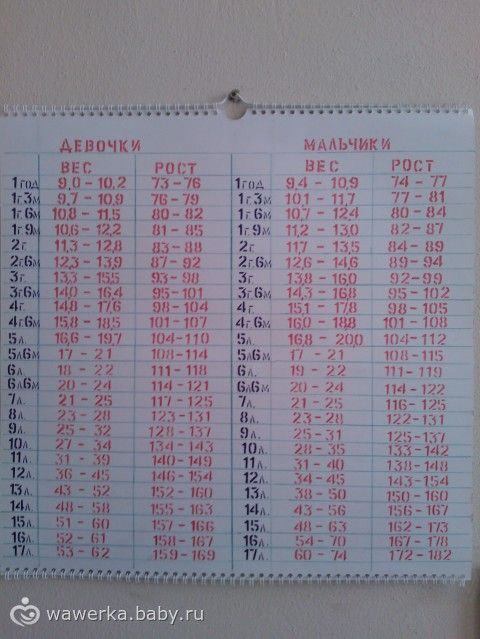 ДЕВОЧКИ МАЛЬЧИКИ
ВЕС РОСТ ВЕС РОСТ
1 год 9,0 - 10,2 73 - 76 1 год 9,4 - 10,9 74 - 77
1 г.3м 9,7 - 10,9 76 - 79 1 г.3м 10,1 - 11,7 77 - 81
1 г.6м 10,8 - 11,5 80 - 82 1 г.6м 10,7 - 12,4 80 - 84
1 г.9м 10,6 - 12,2 81 - 85 1 г.9м 11,2 - 13,0 82 - 87
2 г. 11,3 - 12,8 83 - 88 2 г. 11,7 - 13,5 84 - 89
2 г.6м 12,3 - 13,9 87 - 92 2 г.6м 12,6 - 14,6 89 - 94
3 г. 13,3 - 15,5 93 - 98 3 г. 13,8 - 16,0 92 - 99
3 г.6м 14,0 - 16,4 95 - 101 3 г.6м 14,3 - 16,8 95 - 102
4 г. 14,8 - 17,6 98 - 104 4 г. 15,1 - 17,8 98 - 105
4 г.6м 15,8 - 18,5 101 - 107 4 г.6м 16,0 - 18,8 101 - 108
5 л. 16,6 - 19,7 104 - 110 5 л. 16,8 - 20,0 104 - 112
5 л6м 17 - 21 108 - 114 5 л6м 17 - 21 108 - 115
6 л. 18 - 22 111 - 118 6 л. 19 - 22 111 - 119
6 л6м 20 - 24 114 - 121 6 л6м 20 - 24 114 - 122
7 л. 21 - 25 117 - 125 7 л. 21 - 25 116 - 125
8 л. 23 - 28 123 - 131 8 л. 23 - 28 122 - 131
9 л. 25 - 32 128 - 137 9 л. 25 - 31 125 - 137
10 л. 27 - 34 134 - 143 10 л. 28 - 35 133 - 142
11 л. 31 - 39 140 - 149 11 л. 31 - 40 138 - 148
12 л. 36 - 45 146 - 154 12 л. 34 - 45 143 - 154
13 л. 43 - 52 152 - 160 13 л. 38 - 50 150 - 160
14 л. 48 - 58 155 - 163 14 л. 43 - 56 156 - 167
15 л. 51 - 60 157 - 166 15 л. 48 - 63 162 - 173
16 л. 52 - 61 158 - 167 16 л. 54 - 70 167 - 178
17 л. 53 - 62 159 - 169 17 л. 60 - 74 172 - 182
wawerka.baby.ru